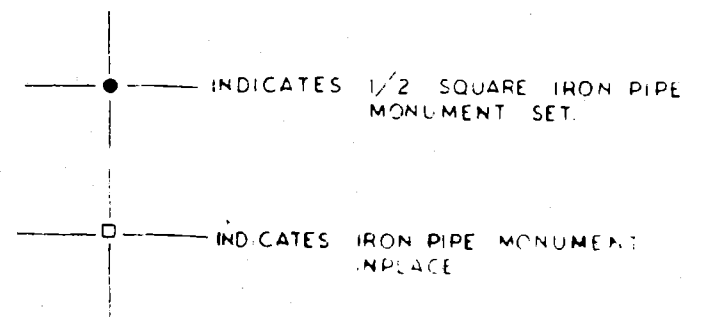 INDICATES 1/2 SQUARE IRON PIPE
MONUMENT SET.
INDICATES IRON PIPE MONUMENT
INPLACE